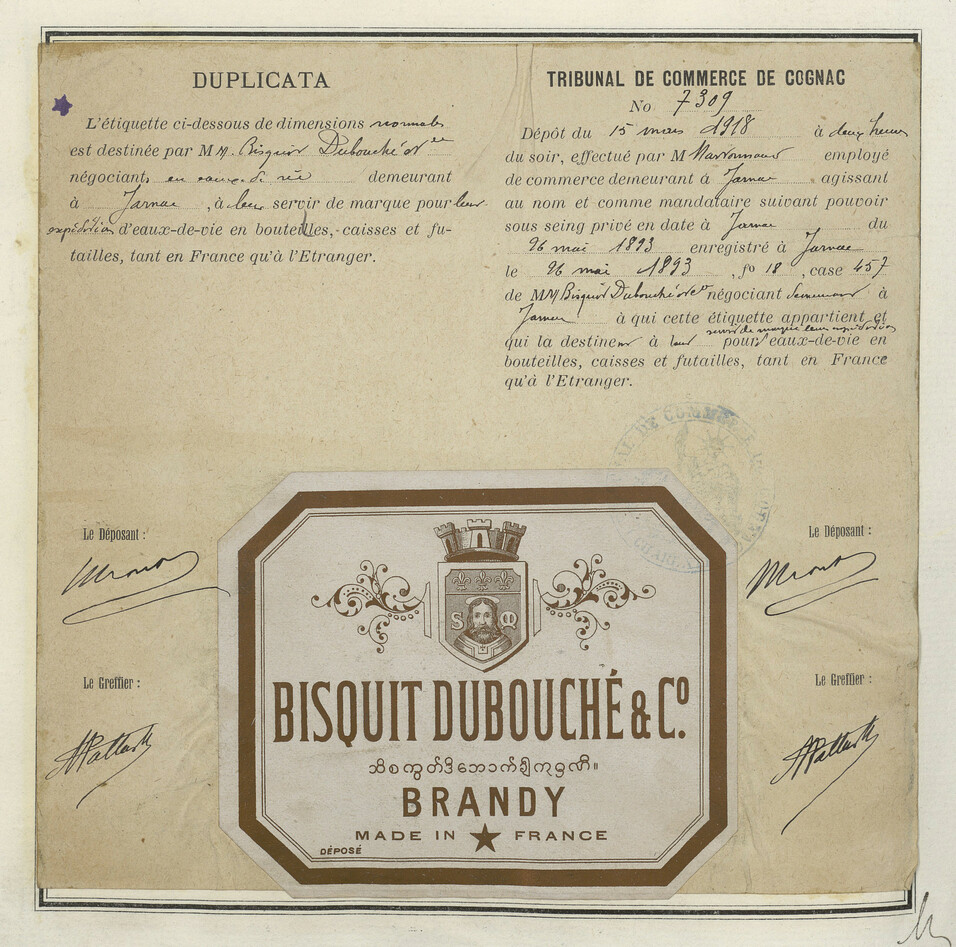 DUPLICATA
L'étiquette ci-dessous de dimensions normales
est destinée par MM. Bisquit Dubouché & Cie
négociants en eaux-de-vie demeurant
à Jarnac, à leur servir de marque pour leur
expédition d'eaux-de-vie en bouteilles, caisses et fu-
tailles, tant en France qu'à l'Etranger.
TRIBUNAL DE COMMERCE DE COGNAC
No 7309
Dépôt du 15 mars 1918 à deux heures
du soir, effectué par M employé
de commerce demeurant à Jarnac agissant
au nom et comme mandataire suivant pouvoir
sous seing privé en date à Jarnac du
26 mai 1893 enregistré à Jarnac
le 26 mai 1893, fo 18, case 457
de MM Bisquit Dubouché & Co négociant demeurant à
Jarnac à qui cette étiquette appartient et
qui la destinent à leur servir de marque pour leurs expéditions d'eaux-de-vie en
bouteilles, caisses et futailles, tant en France
qu'à l'Etranger.
Le Déposant :
Le Déposant :
Le Greffier :
Le Greffier :
S M
BISQUIT DUBOUCHÉ & Co.
ဘိစကွတ်ဒိဘောက်ချိကုဠဏီ။
BRANDY
MADE IN ★ FRANCE
DÉPOSÉ